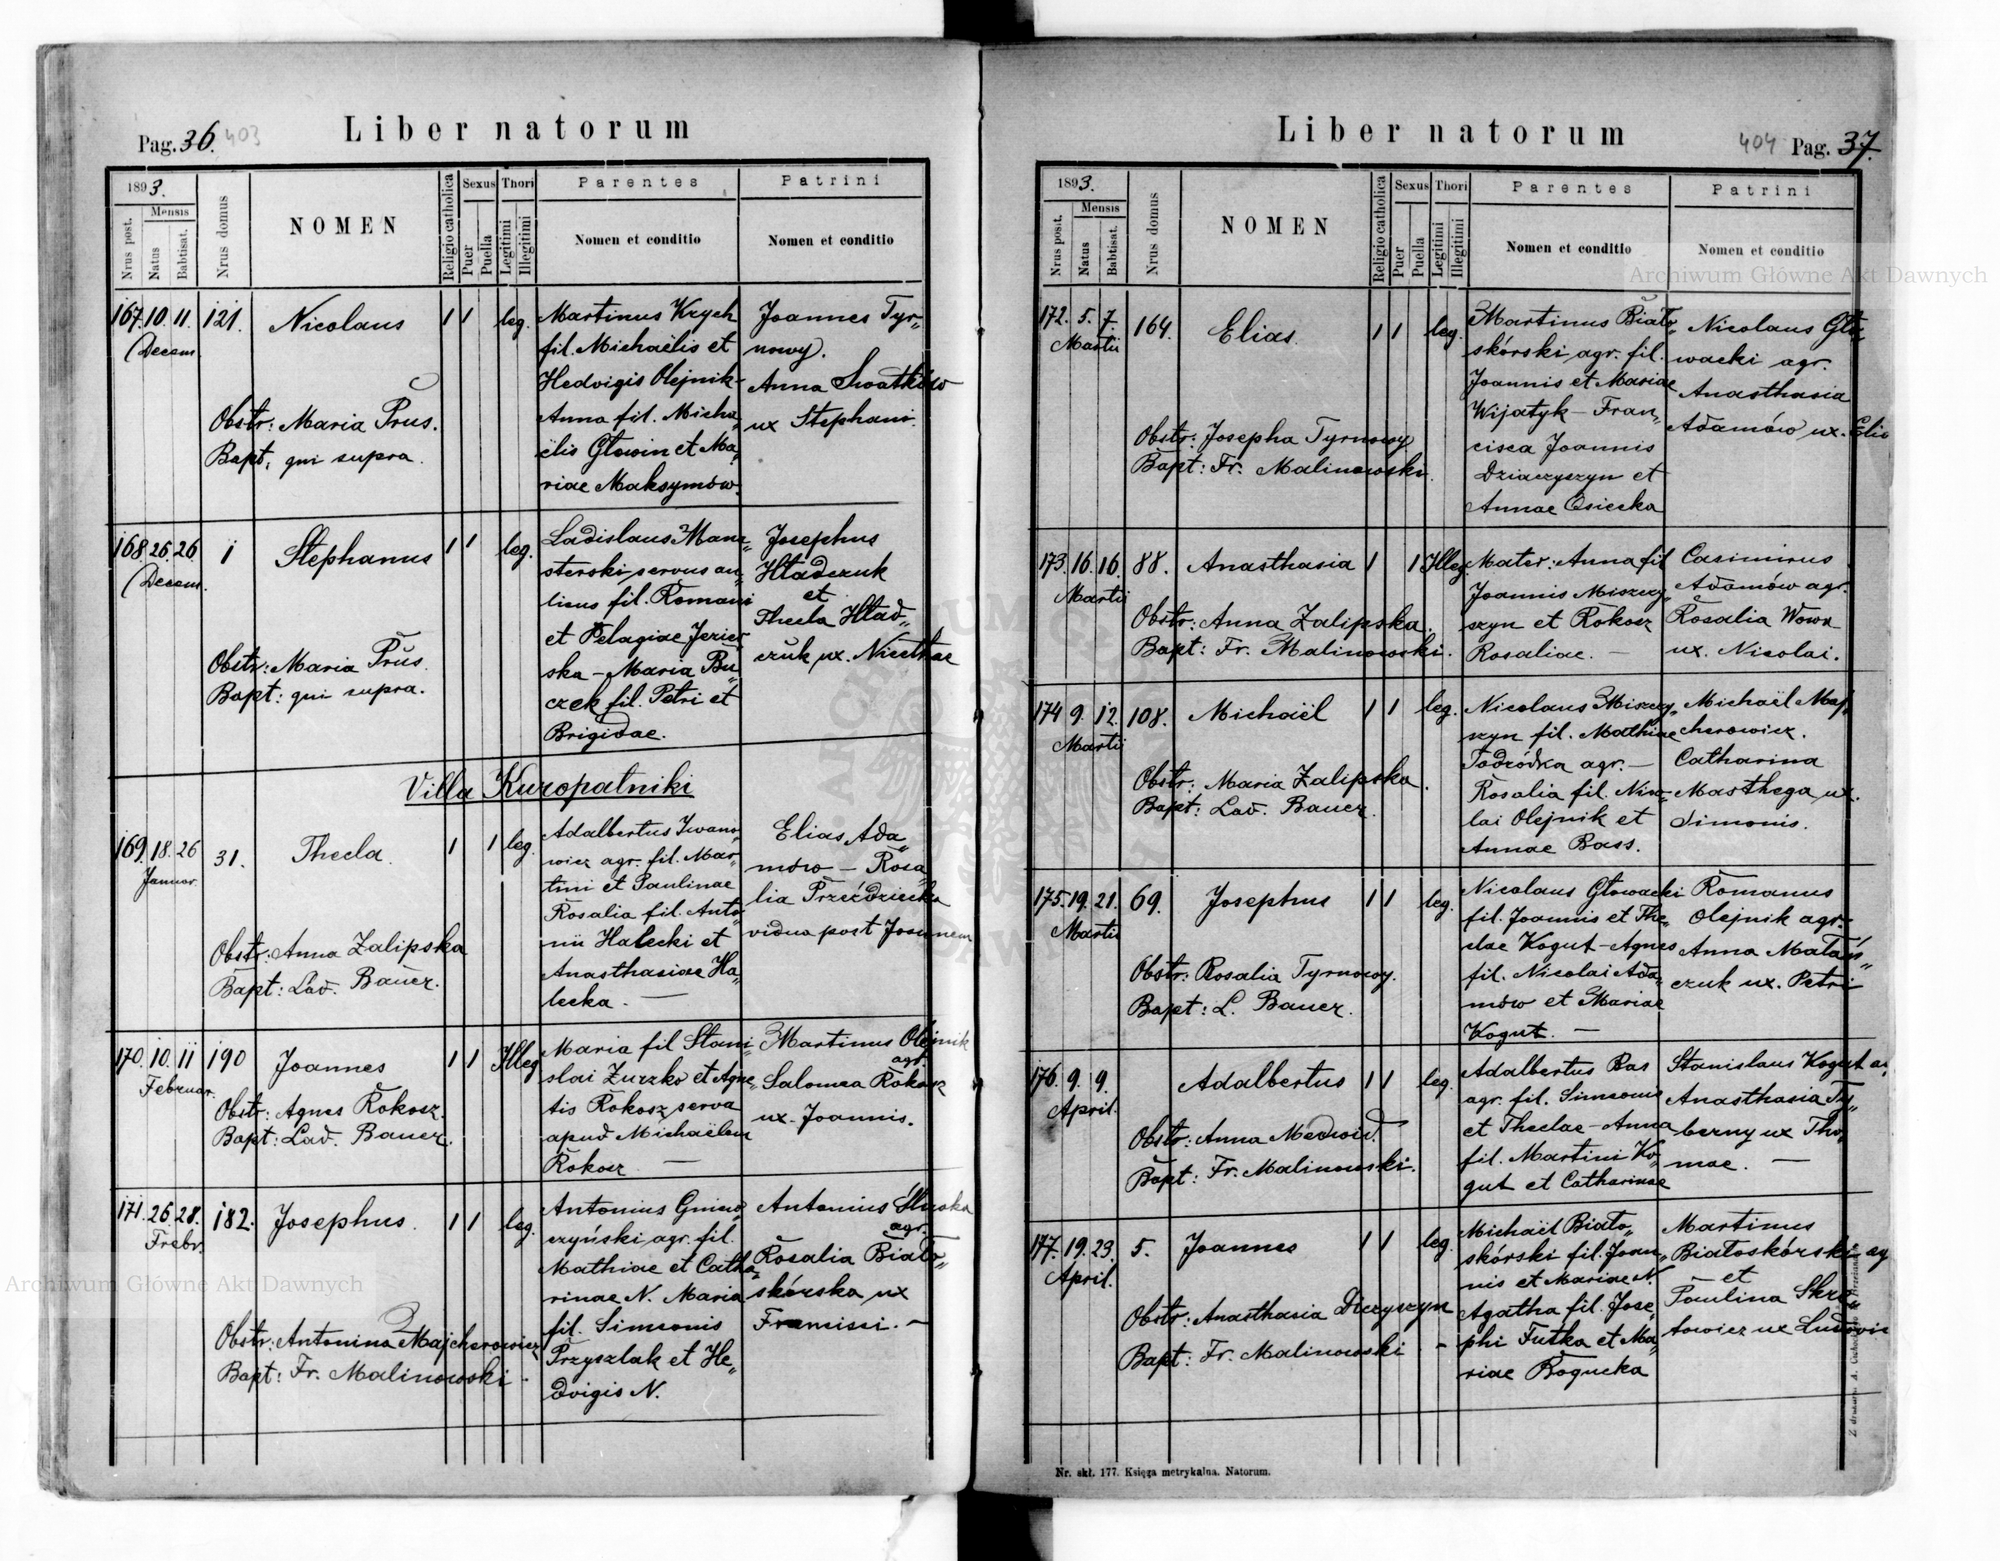 Liber natorum
Pag. 36. 403
1893.
Nrus post.
Mensis
Natus
Babtisat.
Nrus domus
NOMEN
Religio catholica
Sexus
Puer
Puella
Thori
Legitimi
Illegitimi
Parentes
Nomen et conditio
Patrini
Nomen et conditio
167. 10. 11. 121. Nicolaus 1 1 leg.
Decem.
Obstr: Maria Prus.
Bapt. qui supra.
Martinus Krych
fil. Michaelis et
Hedvigis Olejnik-
Anna fil. Micha„
ëlis Głowin et Ma„
riae Maksymow.
Joannes Tyr„
nowy.
Anna
ux Stephani.
168. 26. 26. 1 Stephanus 1 1 leg.
Decem.
Obstr: Maria Prus.
Bapt: qui supra.
Ladislaus Man„
sterski, servus au„
licus fil. Romani
et Pelagiae Jezier
ska - Maria Bu„
czek fil. Petri et
Brigidae.
Josephus
Hładczuk
et
Thecla Hład„
czuk ux. Nicethae
Villa Kuropatniki
169. 18. 26 31. Thecla. 1 1 leg.
Januar.
Obstr: Anna Zalipska
Bapt: Lad. Bauer.
Adalbertus Iwano„
wicz agr. fil. Mar„
tini et Paulinae
Rosalia fil. Anto„
nii Halecki et
Anasthasiae Ha„
lecka. —
Elias Ada„
mów — Rosa„
lia Przeździecka
vidua post Joannem
170. 10. 11 190 Joannes 1 1 Illeg.
Februar.
Obstr: Agnes Rokosz.
Bapt: Lad. Bauer.
Maria fil Stani„
slai Zurzko et Agne„
tis Rokosz serva
apud Michaëlem
Rokosz —
Martinus Olejnik
agr.
Salomea Rokosz
ux. Joannis.
171. 26. 28. 182. Josephus. 1 1 leg.
Febr.
Obstr: Antonina Majcherowicz
Bapt: Fr. Malinowski.
Antonius Gniew„
czyński agr. fil.
Mathiae et Catha„
rinae N. Maria
fil. Simeonis
Przyszlak et He„
dvigis N.
Antonius
agr.
Rosalia Biało„
skórska ux
Francisci. —
Liber natorum
404 Pag. 37.
1893.
Nrus post.
Mensis
Natus
Babtisat.
Nrus domus
NOMEN
Religio catholica
Sexus
Puer
Puella
Thori
Legitimi
Illegitimi
Parentes
Nomen et conditio
Patrini
Nomen et conditio
172. 5. 7. 164. Elias. 1 1 leg.
Martii
Obstr: Josepha Tyrnowy
Bapt: Fr. Malinowski.
Martinus Biało„
skórski, agr. fil.
Joannis et Mariae
Wijatyk - Fran„
cisca Joannis
Dziaczyszyn et
Annae Osiecka
Nicolaus Gło„
wacki agr.
Anasthasia
Adamów ux. Elie
173. 16. 16. 88. Anasthasia 1 1 Illeg.
Martii
Obstr: Anna Zalipska.
Bapt: Fr. Malinowski.
Mater: Anna fil
Joannis Miszczy„
szyn et Rokosz
Rosaliae. —
Casimirus
Adamów agr.
Rosalia Wowk
ux. Nicolai.
174 9. 12. 108. Michaël 1 1 leg.
Martii
Obstr: Maria Zalipska.
Bapt: Lad. Bauer.
Nicolaus Miszczy„
szyn fil. Mathiae
Podródka agr. —
Rosalia fil. Nico„
lai Olejnik et
Annae Bass.
Michaël Maj„
cherowicz.
Catharina
Masthega ux.
Simonis.
175. 19. 21. 69. Josephus 1 1 leg.
Martii
Obstr: Rosalia Tyrnowy.
Bapt: L. Bauer.
Nicolaus Głowacki
fil. Joannis et The„
clae Kogut - Agnes
fil. Nicolai Ada„
mów et Mariae
Kogut. —
Romanus
Olejnik agr.
Anna Matań„
czuk ux. Petri
176. 9. 9. Adalbertus 1 1 leg.
April.
Obstr: Anna Medwid.
Bapt: Fr. Malinowski.
Adalbertus Bas
agr. fil. Simeonis
et Theclae - Anna
fil. Martini Ko„
gut et Catharinae
Stanislaus Kogut a.
Anasthasia Ty„
berny ux Tho„
mae. —
177. 19. 23. 5. Joannes 1 1 leg.
April.
Obstr: Anasthasia Diczyszyn
Bapt: Fr. Malinowski -
Michaël Biało„
skórski fil. Joan„
nis et Mariae N.
Agatha fil. Jose„
phi Futka et Ma„
riae Bogucka
Martinus
Białoskórski ag
et
Paulina Skra„
towicz ux Ludovic
Nr. skł. 177. Księga metrykalna. Natorum.
Archiwum Główne Akt Dawnych
Archiwum Główne Akt Dawnych